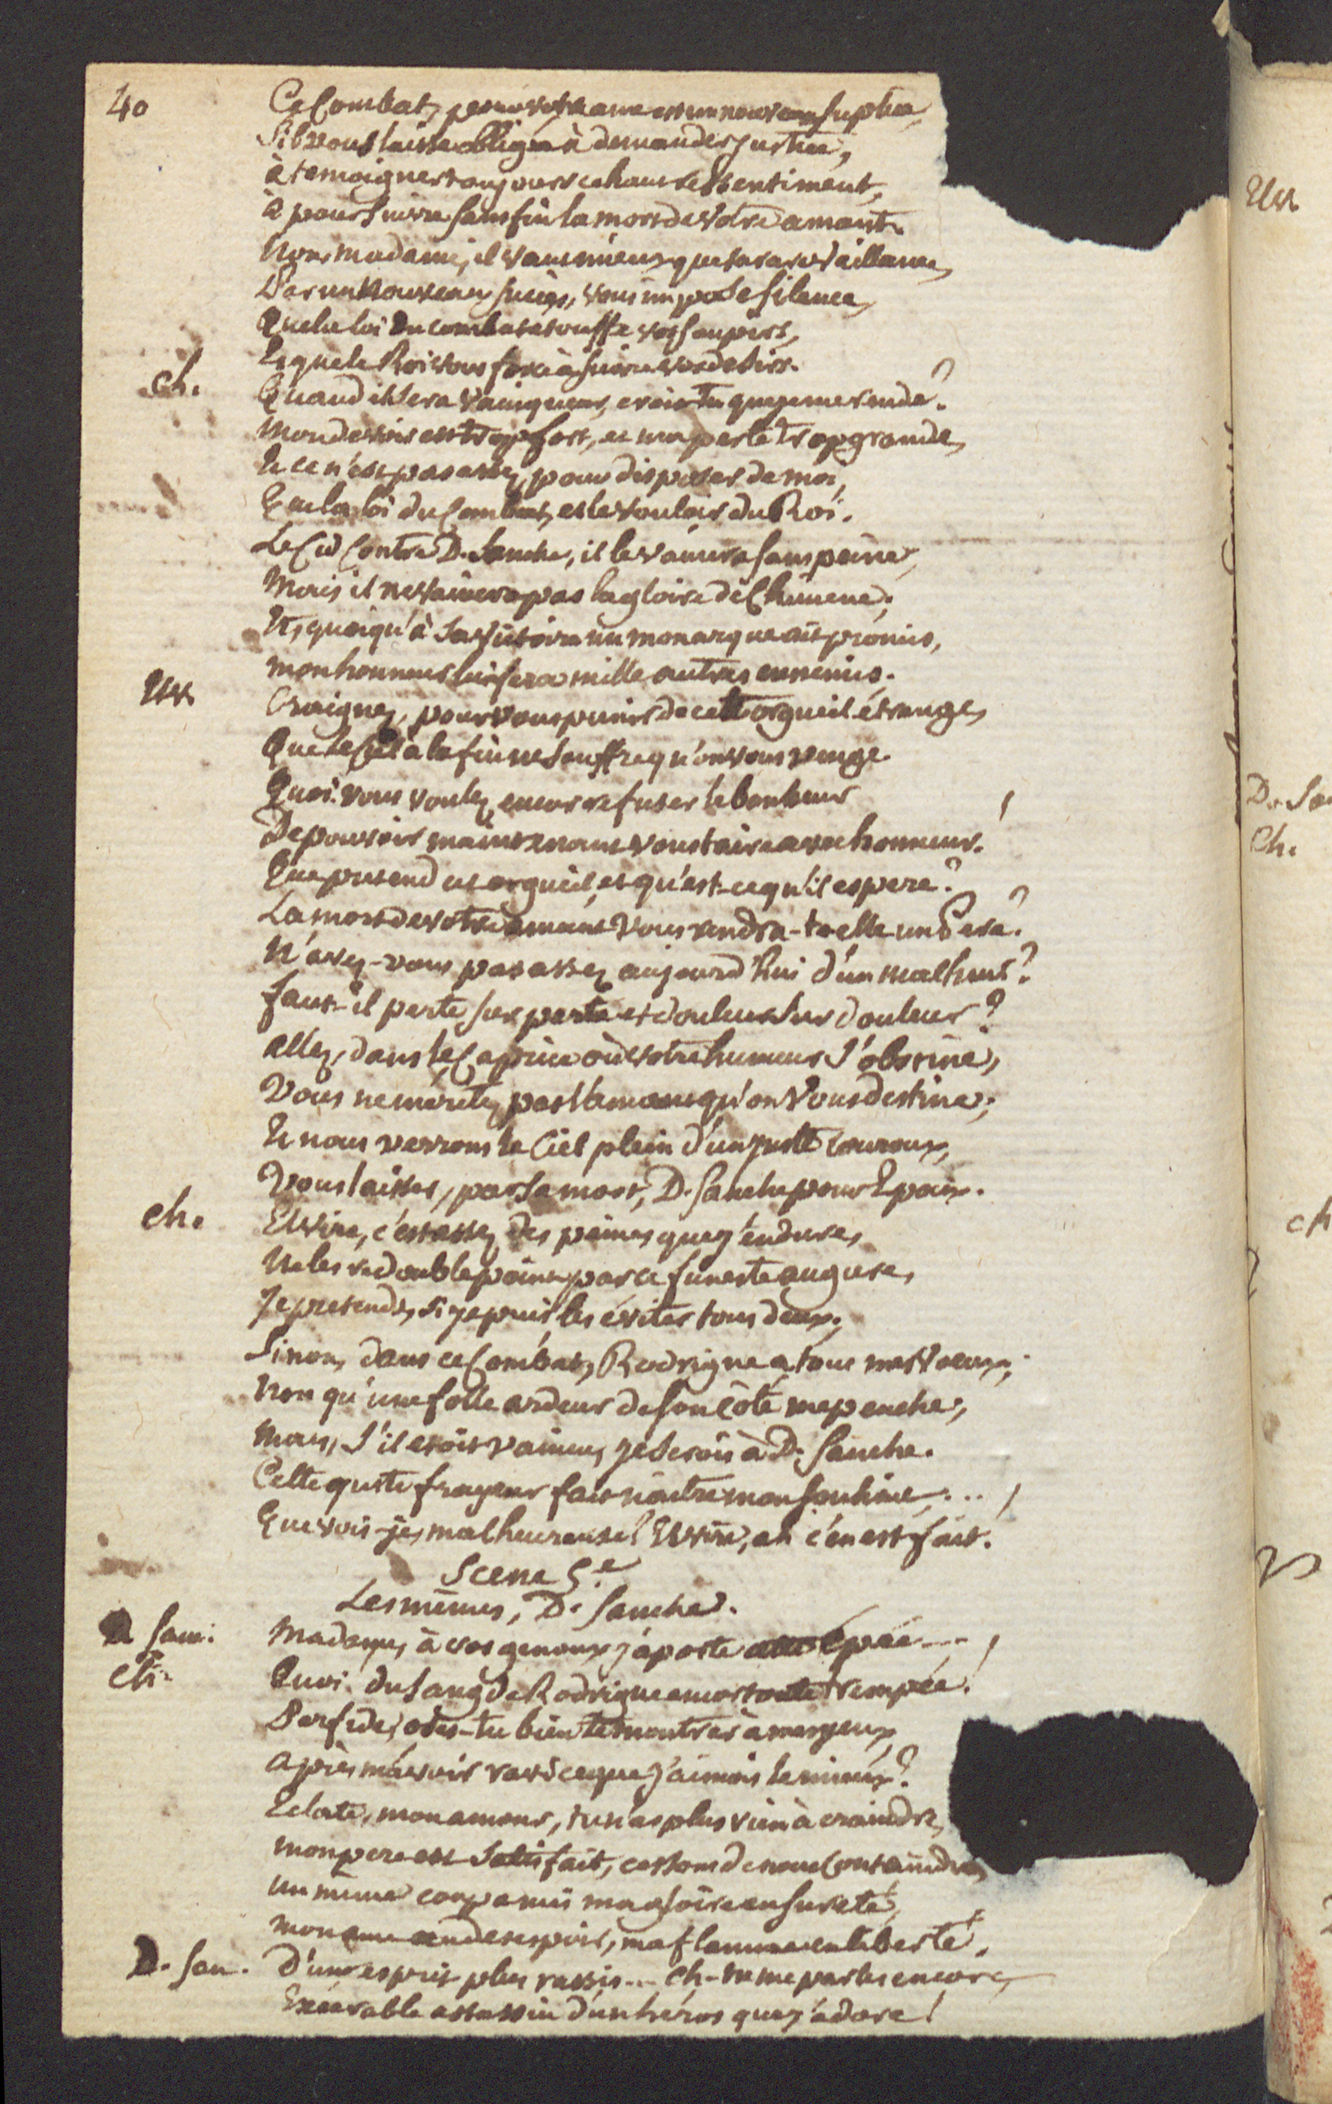 40 Ce Combat, pour votre ame est un nouveau suplice,
S'il vous laisse obligée à demander justice,
à temoigner toujours ce haut ressentiment,
à poursuivre sans fin la mort de votre amant.
Non, madame, il vaut mieux que sa rare vaillance,
Par un nouveau succès, vous impose silence,
Que la loi du combat etouffe vos soupirs,
Et que le Roi vous force à suivre vos desirs.
Ch. Quand il sera vainqueur, crois-tu que je me rende?
Mon devoir est trop fort, et ma perte trop grande,
Et ce n'est pas assez, pour disposer de moi,
Que la loi du Combat, et le vouloir du Roi.
Le Cid Contre D. Sanche, il le vaincra sans peine,
Mais il ne vaincra pas la gloire de Chimene;
Et, quoiqu'à sa victoire un monarque ait promis,
mon honneur lui fera mille autres ennemis.
Elv. Craignez, pour vous punir de cet orgueil étrange,
Que le Ciel à la fin ne souffre qu'on vous venge.
Quoi! vous voulez encor refuser le bonheur
De pouvoir maintenant vous taire avec honneur!
Que pretend cet orgueil, et qu'est-ce qu'il espere?
La mort de votre amant vous rendra-t-elle un Pere?
N'avez-vous pas assez aujourd'hui d'un malheur?
faut-il perte sur perte et douleur sur douleur?
allez, dans le Caprice où votre humeur s'obstine,
Vous ne méritez pas l'amant qu'on vous destine;
Et nous verrons le Ciel plein d'un juste couroux,
Vous laisser, par sa mort, D. Sanche pour Epoux.
Ch. Elvire, c'est assez des peines que j'endure,
Ne les redouble point par ce funeste augure,
Je pretends, si je puis les éviter tous deux;
Sinon, dans ce Combat, Rodrigue a tous mes voeux;
Non qu'une folle ardeur de son côté me penche,
mais, s'il etoit vaincu, je serois à D. Sanche.
Cette juste frayeur fait naitre mon souhait...
Que vois-je, malheureuse! Elvire, ah c'en est fait!
Scene 5.e
Les mêmes, D. Sanche.
D. San. Madame, à vos genoux j'aporte cette épée...
Ch. Quoi! du sang de Rodrigue encor toute trempée!
Perfide, oses-tu bien te montrer à mes yeux,
après m'avoir ravi ce que j'aimois le mieux?
Eclate, mon amour, tu n'as plus rien à craindre,
mon pere est satisfait, cessons de nous Contraindre,
un même coup a mis ma gloire en sureté,
mon ame au desespoir, ma flamme en liberté.
D. San. D'un esprit plus rassis... Ch- tu me parles encore,
Execrable assassin d'un héros que j'adore!
Elv.
D. San
Ch.
Ch